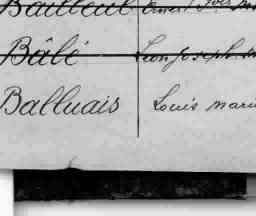 Bailleul Ernest
Bâlé Léon Joseph
Balluais Louis Marie